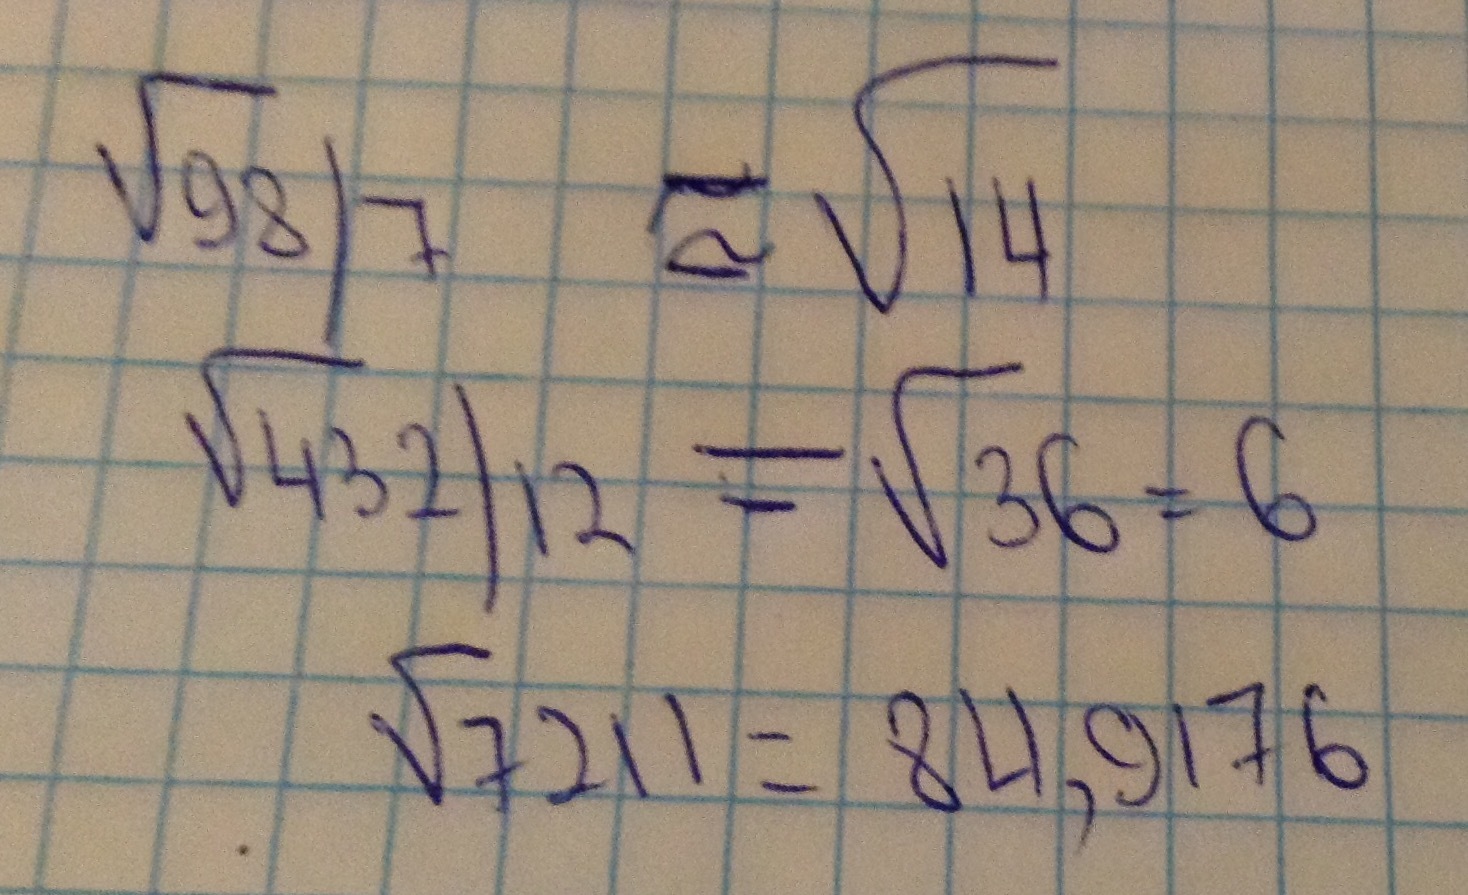 √98|7 ≅ √14
√432|12 = √36 = 6
√7211 = 84,9176